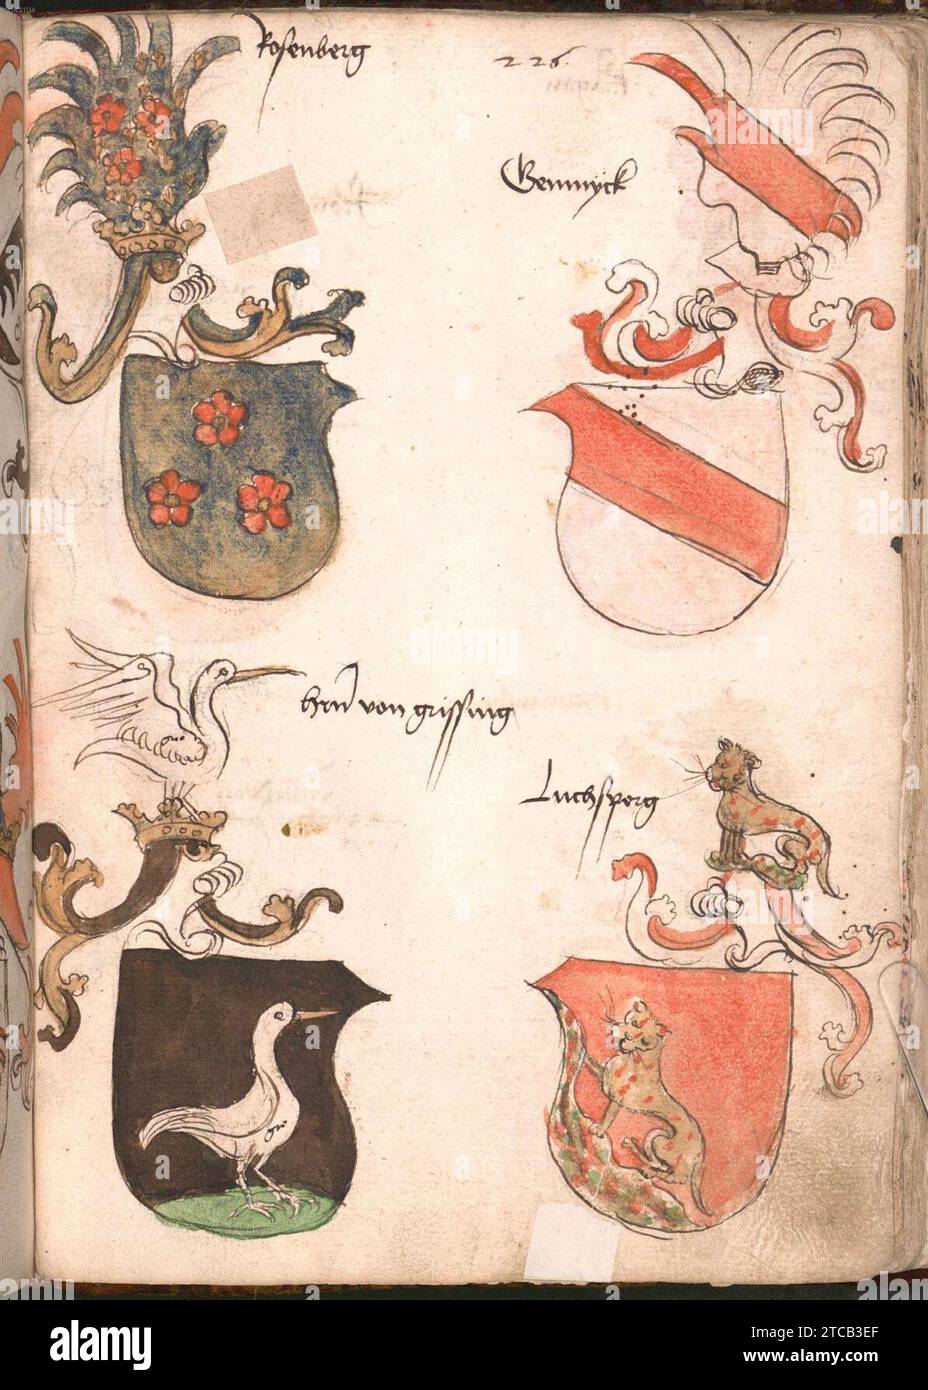 Rosenberg
226.
Gemmyck
hrn von grissing
Luchsperg
alamy
Image ID: 2TCB3EF
www.alamy.com